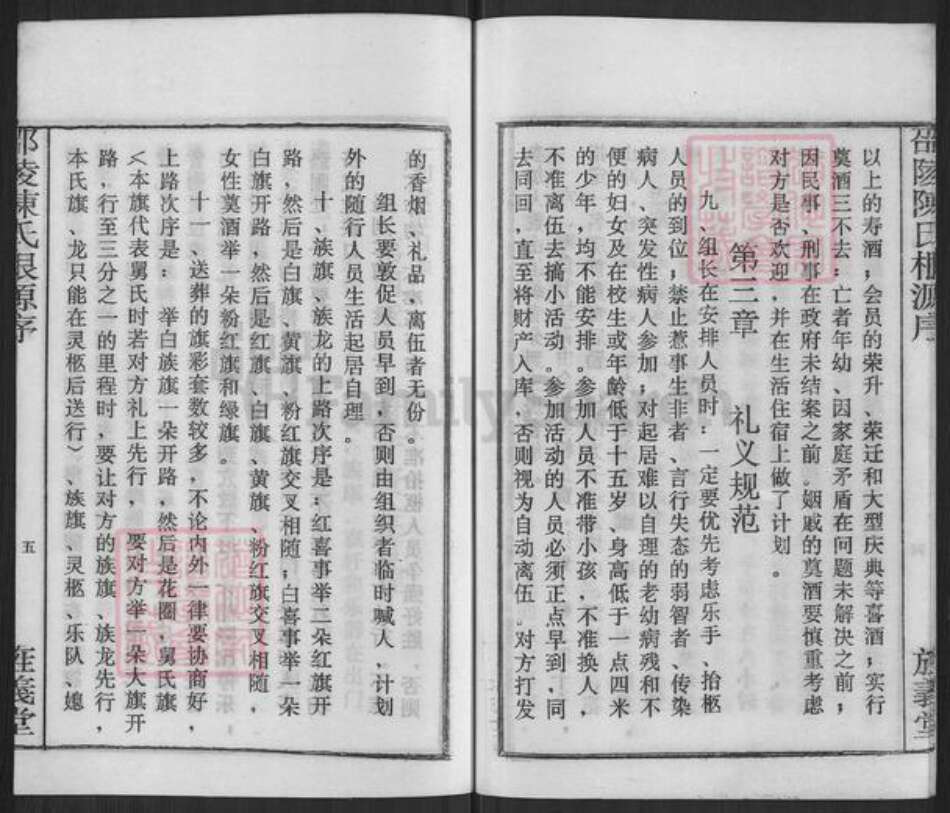 以上的寿酒；会员的荣升、荣迁和大型庆典等喜酒；实行
奠酒三不去：亡者年幼、因家庭矛盾在问题未解决之前；
因民事、刑事在政府未结案之前。姻戚的奠酒要慎重考虑
对方是否欢迎，并在生活住宿上做了计划。
第三章 礼义规范
九、组长在安排人员时：一定要优先考虑乐手、抬柩
人员的到位；禁止惹事生非者、言行失态的弱智者、传染
病人、突发性病人参加；对起居难以自理的老幼病残和不
便的妇女及在校生或年龄低于十五岁、身高低于一点四米
的少年，均不能安排。参加人员不准带小孩，不准换人，
不准离伍去搞小活动。参加活动的人员必须正点早到，同
去同回，直至将财产入库，否则视为自动离伍。对方打发
的香烟、礼品，离伍者无份。
组长要敦促人员早到，否则由组织者临时喊人，计划
外的随行人员生活起居自理。
十、族旗、族龙的上路次序是：红喜事举二朵红旗开
路，然后是白旗、黄旗、粉红旗交叉相随；白喜事举一朵
白旗开路，然后是红旗、白旗、黄旗、粉红旗交叉相随，
女性奠酒举一朵粉红旗和绿旗。
十一、送葬的旗彩套数较多，不论内外一律要协商好，
上路次序是：举白族旗一朵开路，然后是花圈，舅氏旗
〈本旗代表舅氏时若对方礼上先行，要对方举一朵大旗开
路，行至三分之一的里程时，要让对方的族旗、族龙先行，
本氏旗、龙只能在灵柩后送行〉、族旗、灵柩、乐队、媳
邵陵陳氏根源序
五
旌義堂